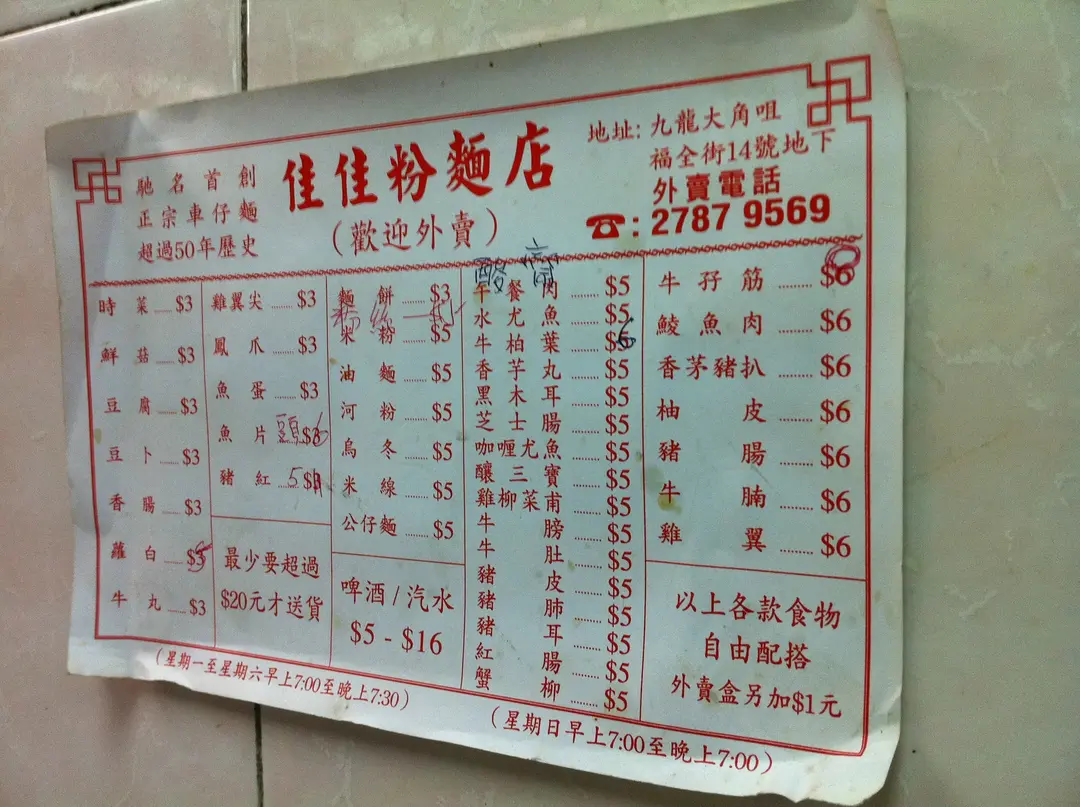 馳名首創
正宗車仔麵
超過50年歷史
佳佳粉麵店
(歡迎外賣)
地址: 九龍大角咀
福全街14號地下
外賣電話
☎: 2787 9569
時菜 ..... $3
鮮菇 ..... $3
豆腐 ..... $3
豆卜 ..... $3
香腸 ..... $3
蘿白 ..... $3
牛丸 ..... $3
雞翼尖 ..... $3
鳳爪 ..... $3
魚蛋 ..... $3
魚片頭 $3
豬紅 5
最少要超過
$20元才送貨
麵餅 ..... $3
米粉 ..... $5
油麵 ..... $5
河粉 ..... $5
烏冬 ..... $5
米線 ..... $5
公仔麵 ..... $5
啤酒 / 汽水
$5 - $16
午餐肉 ..... $5
水尤魚 ..... $5
牛柏葉 ..... $5 6
香芋丸 ..... $5
黑木耳 ..... $5
芝士腸 ..... $5
咖喱尤魚 ..... $5
釀三寶 ..... $5
雞柳菜甫 ..... $5
牛膀 ..... $5
牛肚 ..... $5
豬皮 ..... $5
豬肺 ..... $5
豬耳 ..... $5
紅腸 ..... $5
蟹柳 ..... $5
牛孖筋 ..... $6
鯪魚肉 ..... $6
香茅豬扒 ..... $6
柚皮 ..... $6
豬腸 ..... $6
牛腩 ..... $6
雞翼 ..... $6
以上各款食物
自由配搭
外賣盒另加$1元
(星期一至星期六早上7:00至晚上7:30)
(星期日早上7:00至晚上7:00)